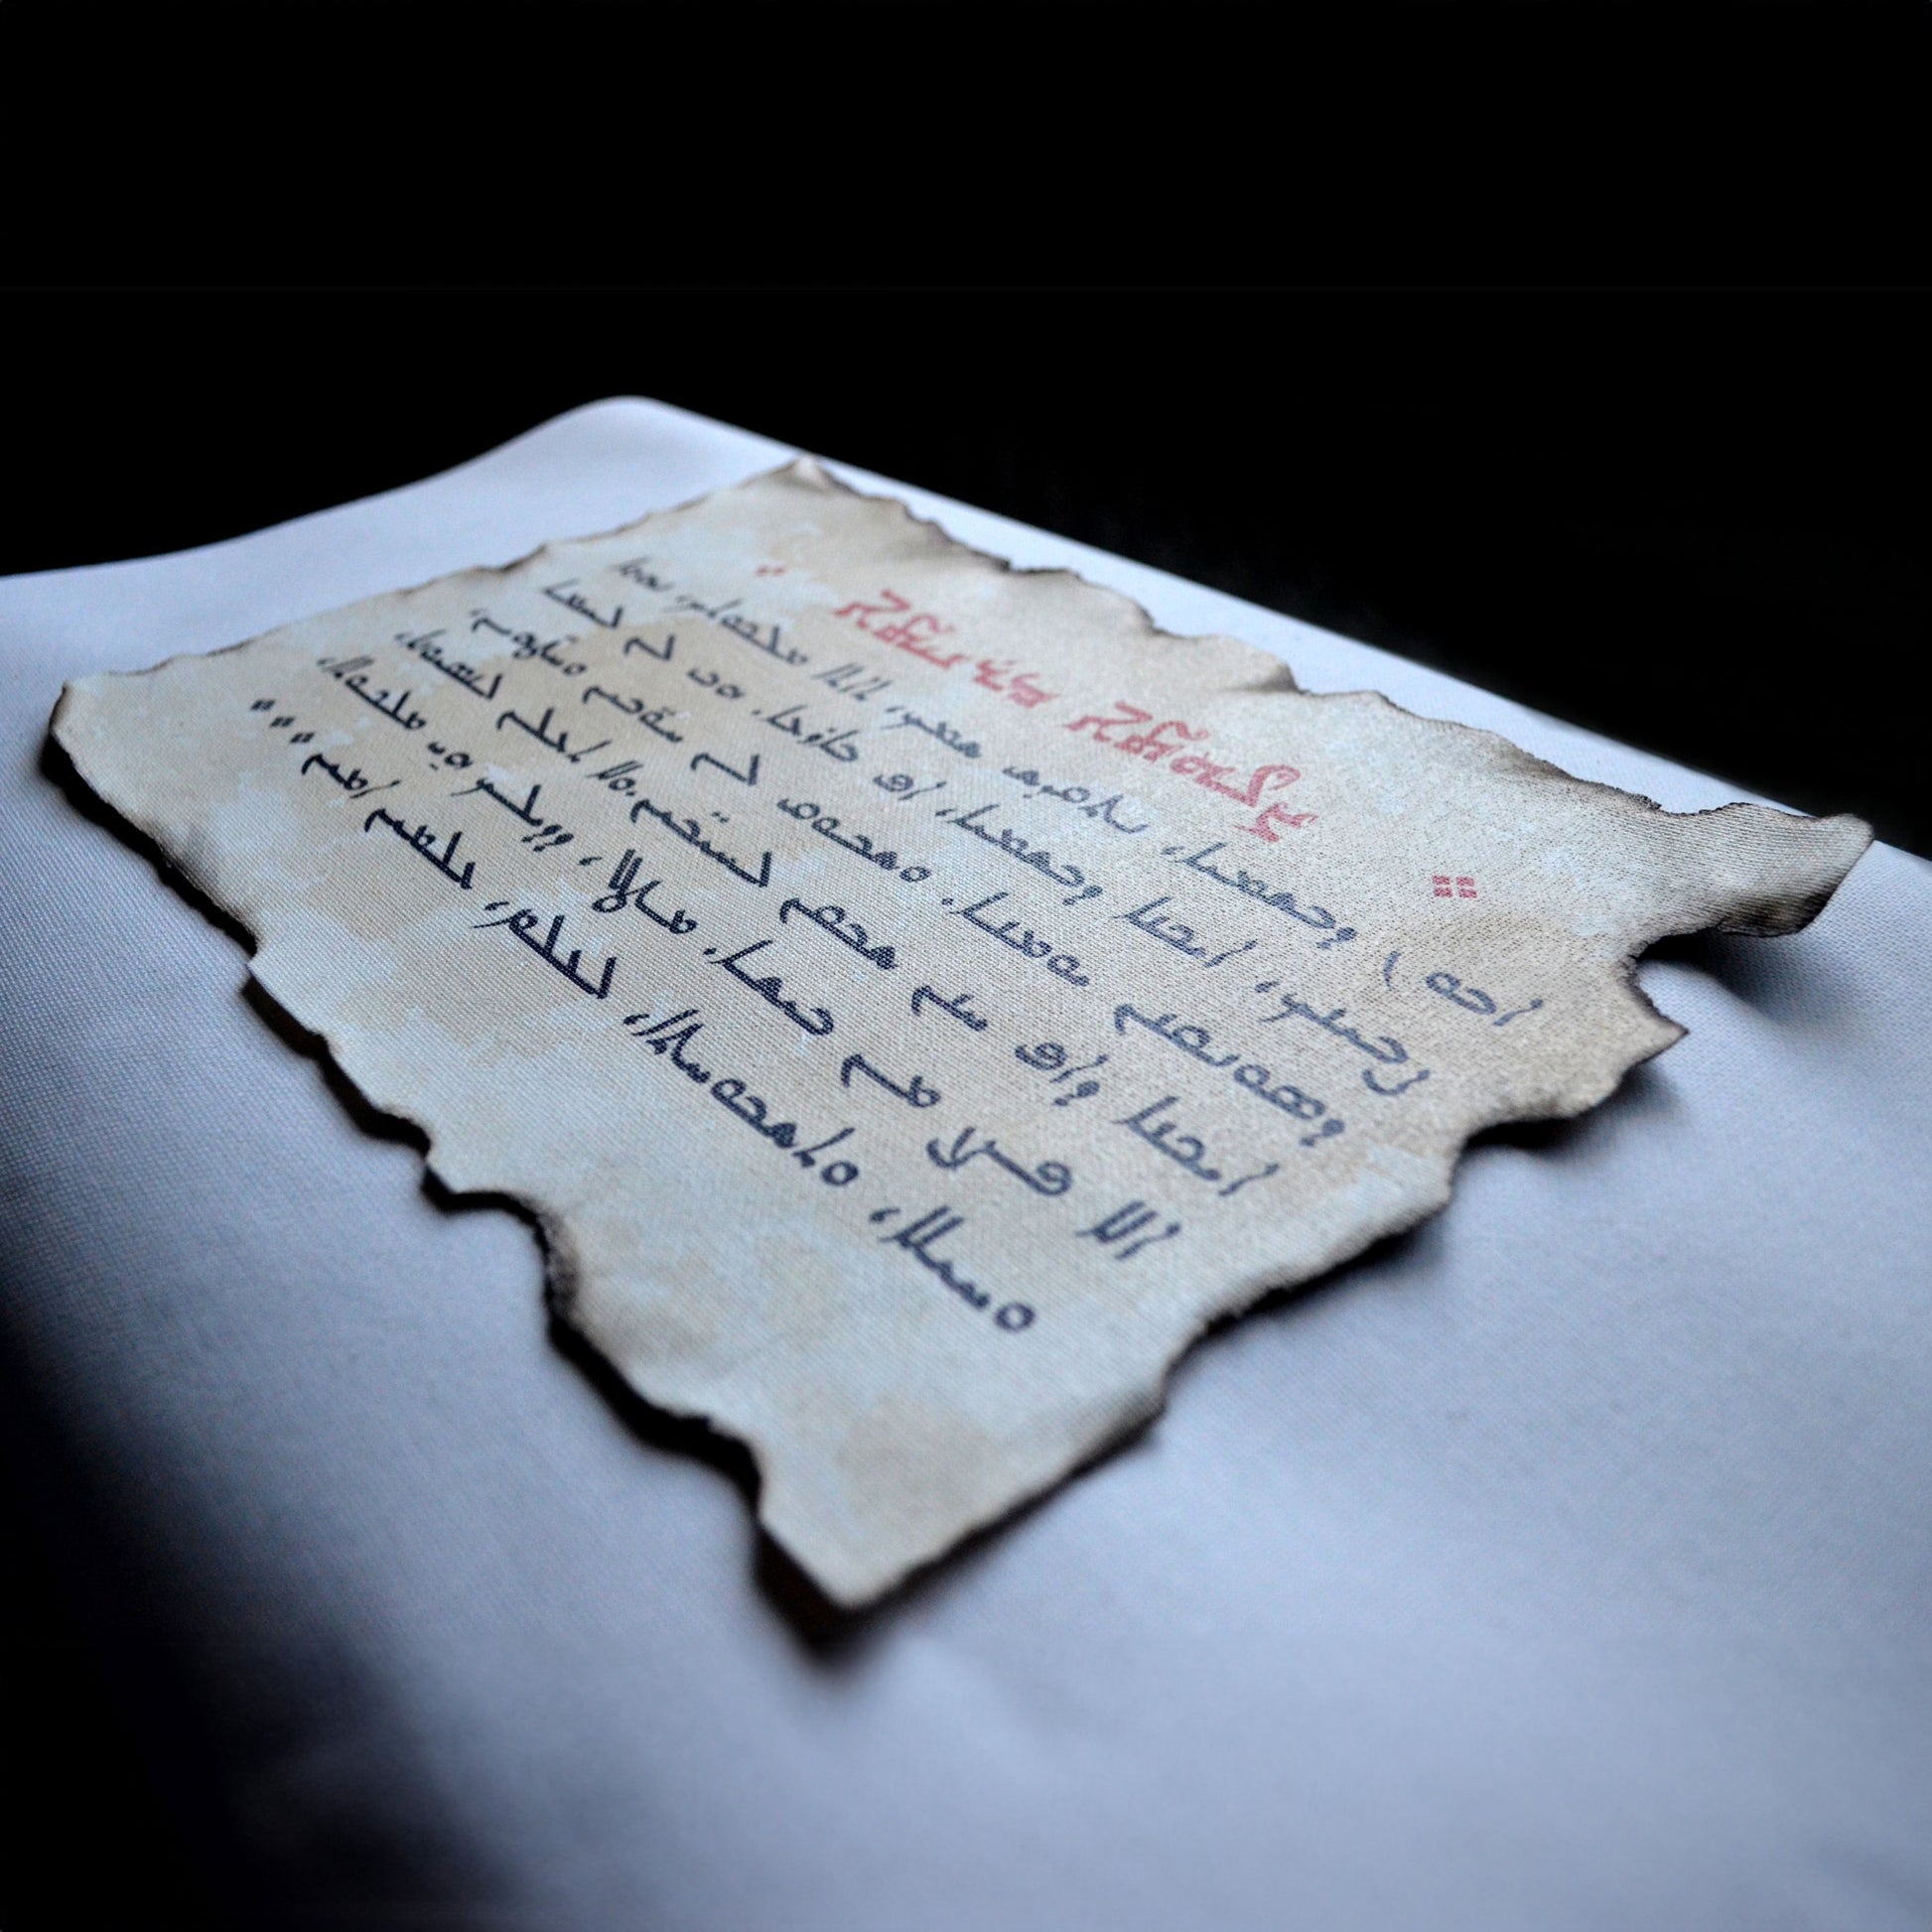 ܀ ܨܠܘܬܐ ܡܪܢܝܬܐ ܀
ܐܒܘ ܢ ܕܒܫܡܝܐ، ܢܬܩܕܫ ܫܡܟ، ܬܐܬܐ ܡܠܟܘܬܟ، ܢܗܘܐ
ܨܒܝܢܟ، ܐܝܟܢܐ ܕܒܫܡܝܐ، ܐܦ ܒܐܪܥܐ. ܗܒ ܠܢ ܠܚܡܐ
ܕܣܘܢܩܢܢ ܝܘܡܢܐ. ܘܫܒܘܩ ܠܢ ܚܘ̈ܒܝܢ ܘܚܛܗ̈ܝܢ،
ܐܝܟܢܐ ܕܐܦ ܚܢܢ ܫܒܩܢ ܠܚܝ̈ܒܝܢ.ܘܠܐ ܬܥܠܢ ܠܢܣܝܘܢܐ،
ܐܠܐ ܦܨܐ ܡܢ ܒܝܫܐ. ܡܛܠ، ܕܕܝܠܟ ܗܝ ܡܠܟܘܬܐ،
ܘܚܝܠܐ، ܘܬܫܒܘܚܬܐ، ܠܥܠܡ، ܥܠܡܝܢ ܐܡܝܢ ܀ ܀ ܀